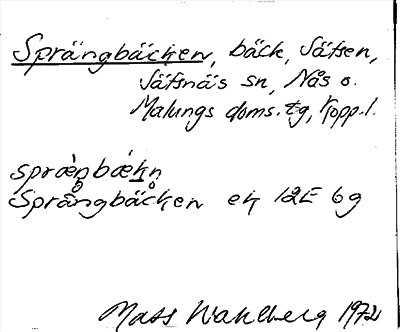 Sprängbäcken, bäck, Säfsen,
Säfsnäs sn, Nås o.
Malungs doms. tg, Kopp. l.
spræŋbækn
Sprängbäcken ek 12E 6g
Mats Wahlberg 1972